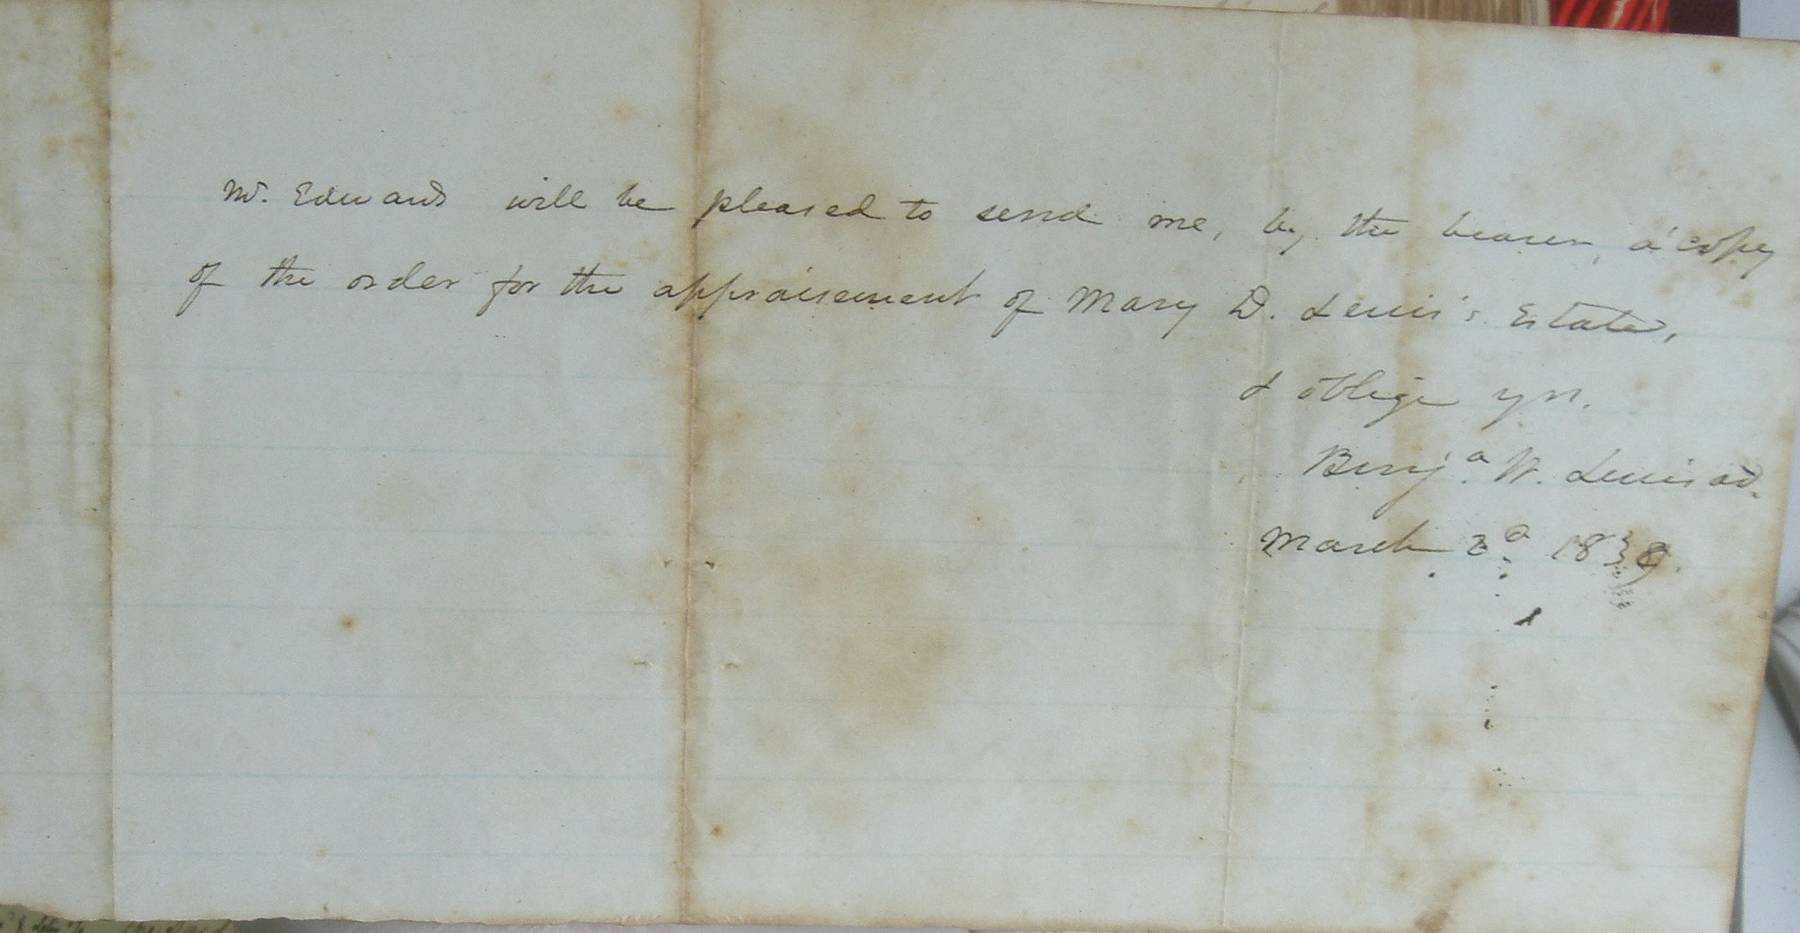 Mr. Edwards will be pleased to send me, by the bearer, a copy
of the order for the appraisement of Mary D. Lewis's Estate,
& oblige yrs.
Benja. W. Lewis ad.
March 2d. 1839.